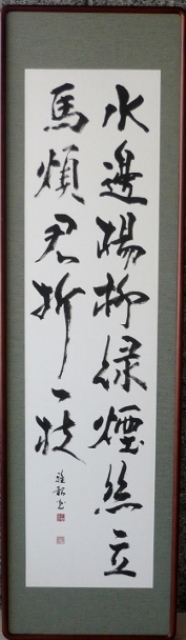 水邊楊柳緑煙絲立
馬煩君折一枝